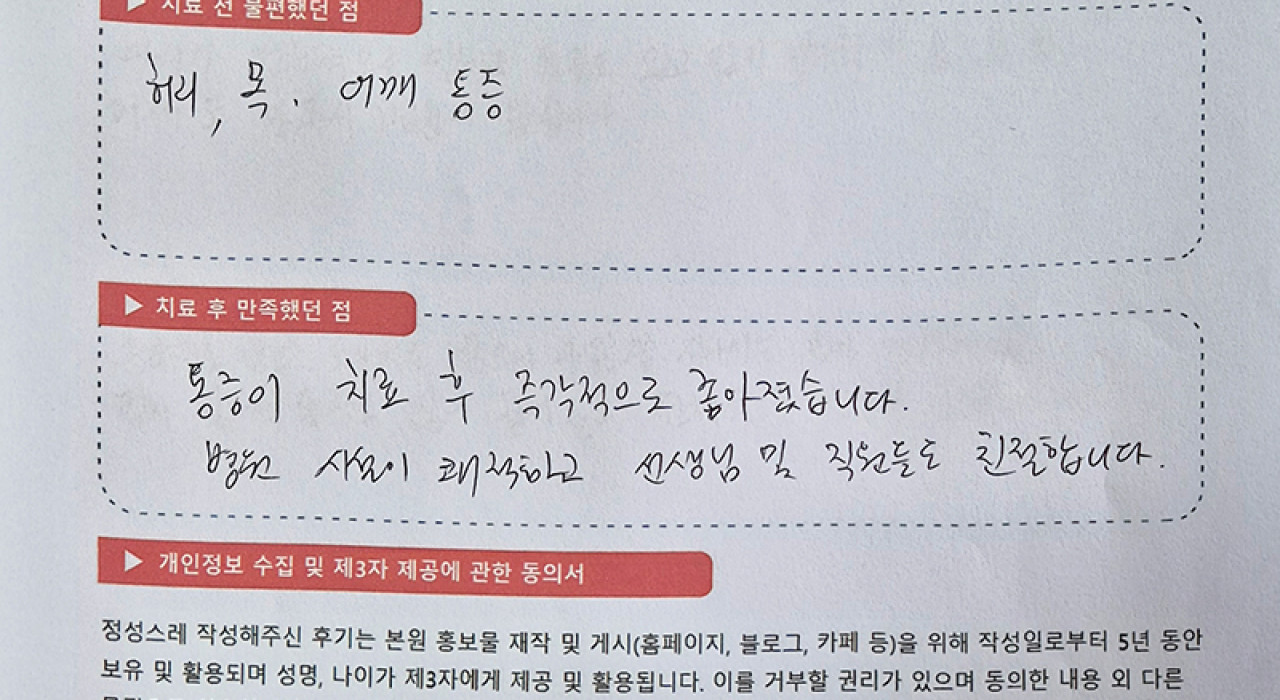 ▶ 치료 전 불편했던 점
허리, 목. 어깨 통증
▶ 치료 후 만족했던 점
통증이 치료 후 즉각적으로 좋아졌습니다.
병원 시설이 쾌적하고 선생님 및 직원들도 친절합니다.
▶ 개인정보 수집 및 제3자 제공에 관한 동의서
정성스레 작성해주신 후기는 본원 홍보물 재작 및 게시(홈페이지, 블로그, 카페 등)을 위해 작성일로부터 5년 동안
보유 및 활용되며 성명, 나이가 제3자에게 제공 및 활용됩니다. 이를 거부할 권리가 있으며 동의한 내용 외 다른